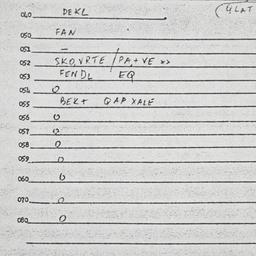 040 DEKL (4LAT
050 FAN
051 –
052 SKO, VRTE / PA,+ VE
053 FENDL EQ
054 0
055 BEKT QAP XALE
056 0
057 0
058 0
059 0
060 0
070 0
080 0